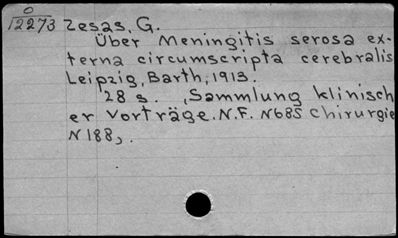 O
12273 Zesas, G.
Über Meningitis serosa ex-
terna circumscripta cerebralis
Leipzig, Barth, 1913.
28 s. , Sammlung klinisch
er Vorträge. N.F. N685 Chirurgie
N188,.